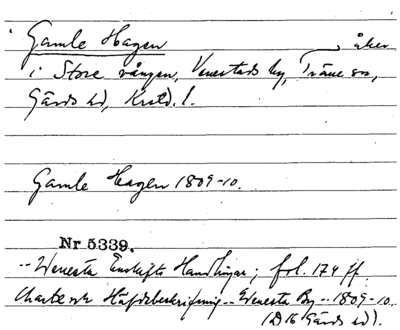 Gamle Hagen åker
i Store vången, Venestads by, Träne sn,
Gärds hd, Krstd. l.
Gamle Hagen 1809-10.
Nr 5339.
--Wenesta Enskifte Handlingar; fol. 174 ff.
Charte och Häfdebeskrifning -- Wenesta By -- 1809-10.
(D16 Gärds hd).